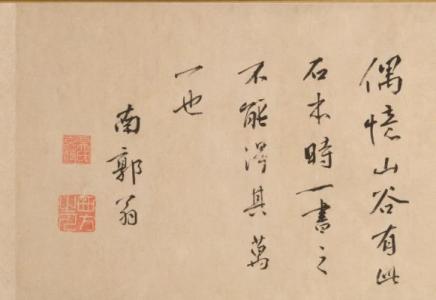 偶憶山谷有此
石本時一書之
不能得其萬
一也
南郭翁